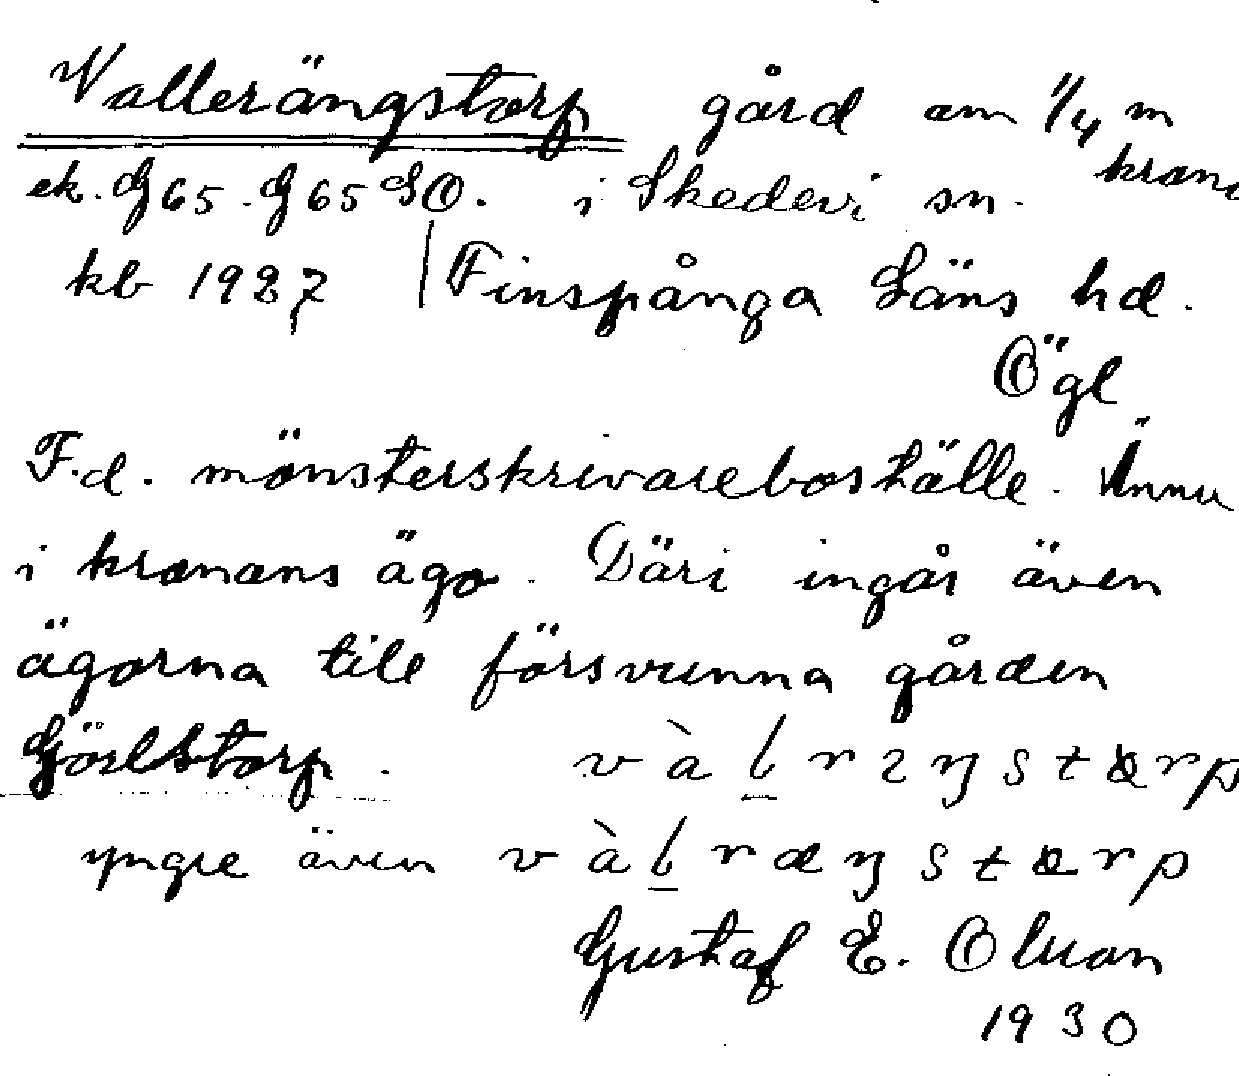 Vallerängstorp gård om 1/4 m
krono
ek. G 65. G 65 SO. i Skedevi sn.
kb 1927 | Finspånga läns hd.
Ögl
F.d. mönsterskrivareboställe. Ännu
i kronans ägo. Däri ingår även
ägorna till försvunna gården
Göslstorp.
yngre även
Gustaf E. Olson
1930